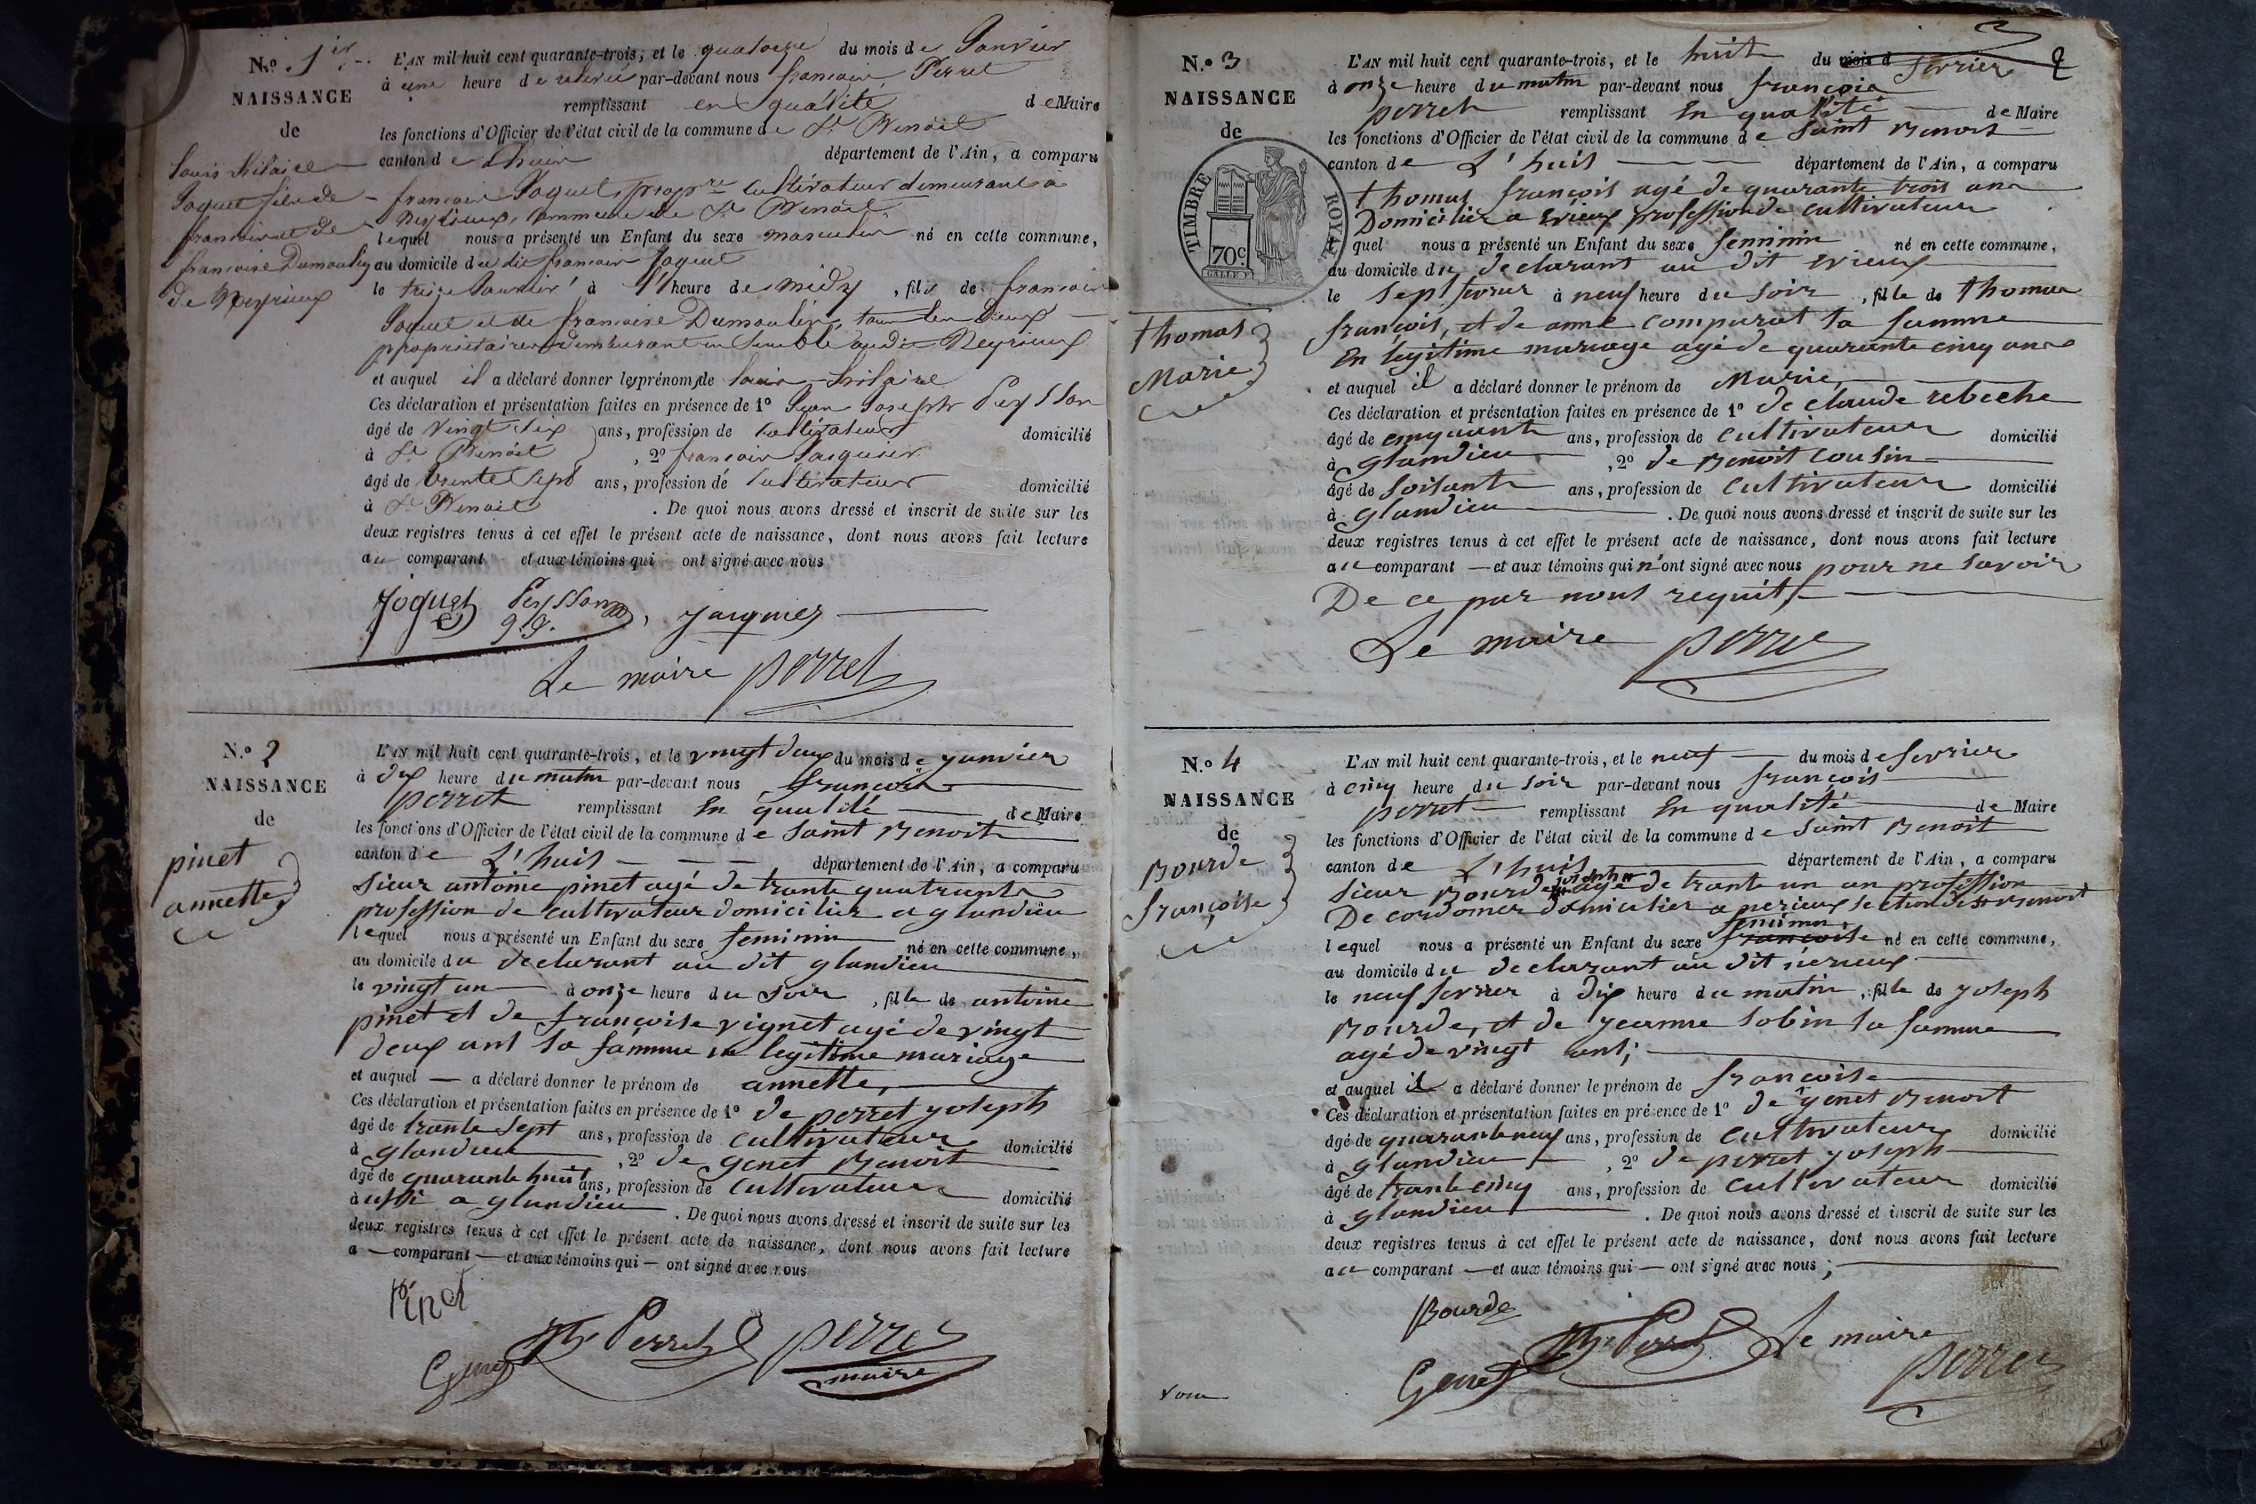 N.º 1er
NAISSANCE
de
Louis hilaire
Joquet fils de
francois et de
francoise Dumoulin
de Neyrieux
L'AN mil huit cent quarante-trois, et le quatorze du mois de Janvier
à une heure de relevée par-devant nous francois Perret
remplissant en qualité de Maire
les fonctions d'Officier de l'état civil de la commune de St Benoit
canton de Lhuis département de l'Ain, a comparu
francois Joquet, propre cultivateur demeurant à
Neyrieux, commune de St Benoit
lequel nous a présenté un Enfant du sexe masculin né en cette commune,
au domicile du dit francois Joquet
le treize Janvier à l'heure de midy, fils de francois
Joquet et de francoise Dumoulin, tous les deux
propriétaires demeurant ensemble audit Neyrieux
et auquel il a déclaré donner les prénoms de Louis hilaire
Ces déclaration et présentation faites en présence de 1º Jean Joseph Peysson
âgé de vingt six ans, profession de cultivateur domicilié
à St Benoit, 2º francois Jacquier
âgé de trente sept ans, profession de cultivateur domicilié
à St Benoit. De quoi nous avons dressé et inscrit de suite sur les
deux registres tenus à cet effet le présent acte de naissance, dont nous avons fait lecture
au comparant et aux témoins qui ont signé avec nous
Joquet Peysson jacquier
Le maire perret
N.º 2
NAISSANCE
de
pinet
annette
L'AN mil huit cent quarante-trois, et le vingt deux du mois de janvier
à dix heure du matin par-devant nous francois
perret remplissant En qualité de Maire
les fonctions d'Officier de l'état civil de la commune de saint Benoit
canton de L'huis département de l'Ain, a comparu
sieur antoine pinet agé de trante quatre ants
profession de cultivateur domicilier a glandieu
lequel nous a présenté un Enfant du sexe feminin né en cette commune,
au domicile du declarant au dit glandieu
le vingt un à onze heure du soir, fille de antoine
pinet et de francoise vignet agé de vingt
deux ant sa famme en legitime mariage
et auquel a déclaré donner le prénom de annette,
Ces déclaration et présentation faites en présence de 1º de perret joseph
âgé de trante sept ans, profession de cultivateur domicilié
à glandieu, 2º de genet Benoit
âgé de quarante huit ans, profession de cultivateur domicilié
à ussi a glandieu. De quoi nous avons dressé et inscrit de suite sur les
deux registres tenus à cet effet le présent acte de naissance, dont nous avons fait lecture
a comparant et aux témoins qui ont signé avec nous
Pinet
Genet Perret perret
maire
2
N.º 3
NAISSANCE
de
TIMBRE ROYAL
70 c.
thomas
Marie
L'AN mil huit cent quarante-trois, et le huit du mois d fevrier
à onze heure du matin par-devant nous francois
perret remplissant En qualité de Maire
les fonctions d'Officier de l'état civil de la commune de saint Benoit
canton de L'huis département de l'Ain, a comparu
thomas françois agé de quarante trois an
Domicilier a Erieux profession de cultivateur
quel nous a présenté un Enfant du sexe feminin né en cette commune,
au domicile du declarant au dit Erieux
le sept fevrier à neuf heure du soir, fille de thomas
françois, et de anne comparat sa famme
En legitime mariage agé de quarante cinq ans
et auquel il a déclaré donner le prénom de Marie,
Ces déclaration et présentation faites en présence de 1º de claude rebeche
âgé de cinquante ans, profession de cultivateur domicilié
à glandieu, 2º de Benoit cousin
âgé de soisante ans, profession de cultivateur domicilié
à glandieu. De quoi nous avons dressé et inscrit de suite sur les
deux registres tenus à cet effet le présent acte de naissance, dont nous avons fait lecture
au comparant et aux témoins qui n'ont signé avec nous pour ne savoir
De ce par nous requit,
Le maire perret
N.º 4
NAISSANCE
de
Bourde
françoise
L'AN mil huit cent quarante-trois, et le neuf du mois de fevrier
à cinq heure du soir par-devant nous françois
perret remplissant En qualité de Maire
les fonctions d'Officier de l'état civil de la commune de saint Benoit
canton de L'huis département de l'Ain, a comparu
sieur Bourde joseph agé de trante un an profession
De cordonier domicilier a nerieux section de st Benoit
lequel nous a présenté un Enfant du sexe françoise feminin né en cette commune,
au domicile du declarant au dit nerieux
le neuf fevrier à dix heure du matin, fille de joseph
Bourde, et de jeanne sobin sa famme
agé de vingt ant;
et auquel il a déclaré donner le prénom de françoise
Ces déclaration et présentation faites en présence de 1º de genet Benoit
âgé de quarante neuf ans, profession de cultivateur domicilié
à glandieu, 2º de perret joseph
âgé de trante cinq ans, profession de cultivateur domicilié
à glandieu. De quoi nous avons dressé et inscrit de suite sur les
deux registres tenus à cet effet le présent acte de naissance, dont nous avons fait lecture
au comparant et aux témoins qui ont signé avec nous;
Bourde
Genet Perret Le maire
perret